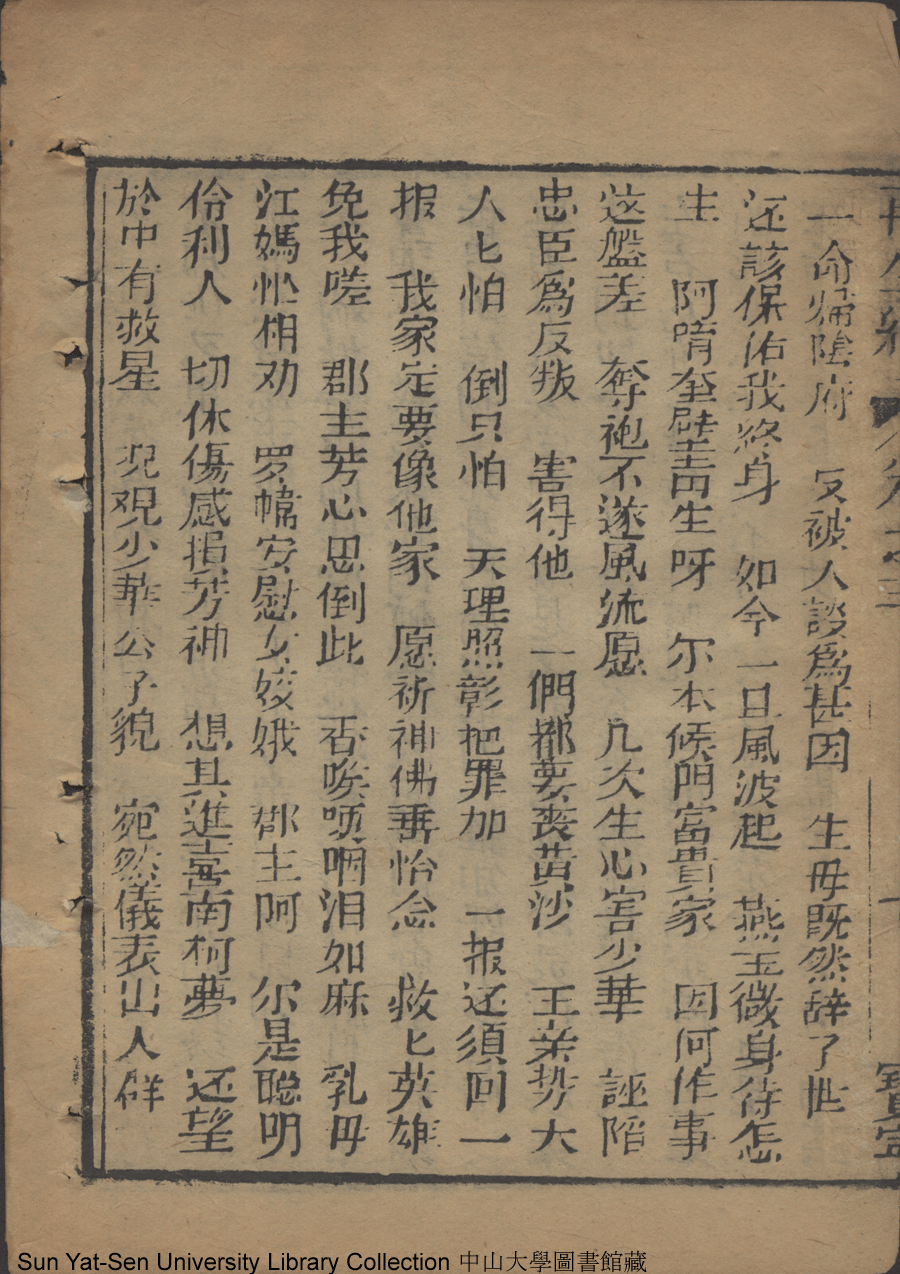 再生緣
寶
一命歸陰府 反被人談為甚因 生母既然辞了世
还該保佑我終身 如今一旦風波起 燕玉微身待怎
生 阿唷奎壁哥生呀 尔本候門富貴家 因何作事
这盤差 奪袍不遂風流愿 几次生心害少華 誣陷
忠臣為反叛 害得他 一們都要丧黄沙 王亲势大
人匕怕 倒只怕 天理照彰把罪加 一报还須回一
报 我家定要像他家 愿祈神佛垂怡念 救匕英雄
免我嗟 郡主芳心思倒此 吞唉哽咽泪如麻 乳母
江媽忙相劝 罗幃安慰女姣娥 郡主阿 尔是聪明
伶利人 切休傷感損芳神 想其進喜南柯夢 还望
於中有救星 况观少華公子貌 宛然儀表出人群
Sun Yat-Sen University Library Collection 中山大學圖書館藏